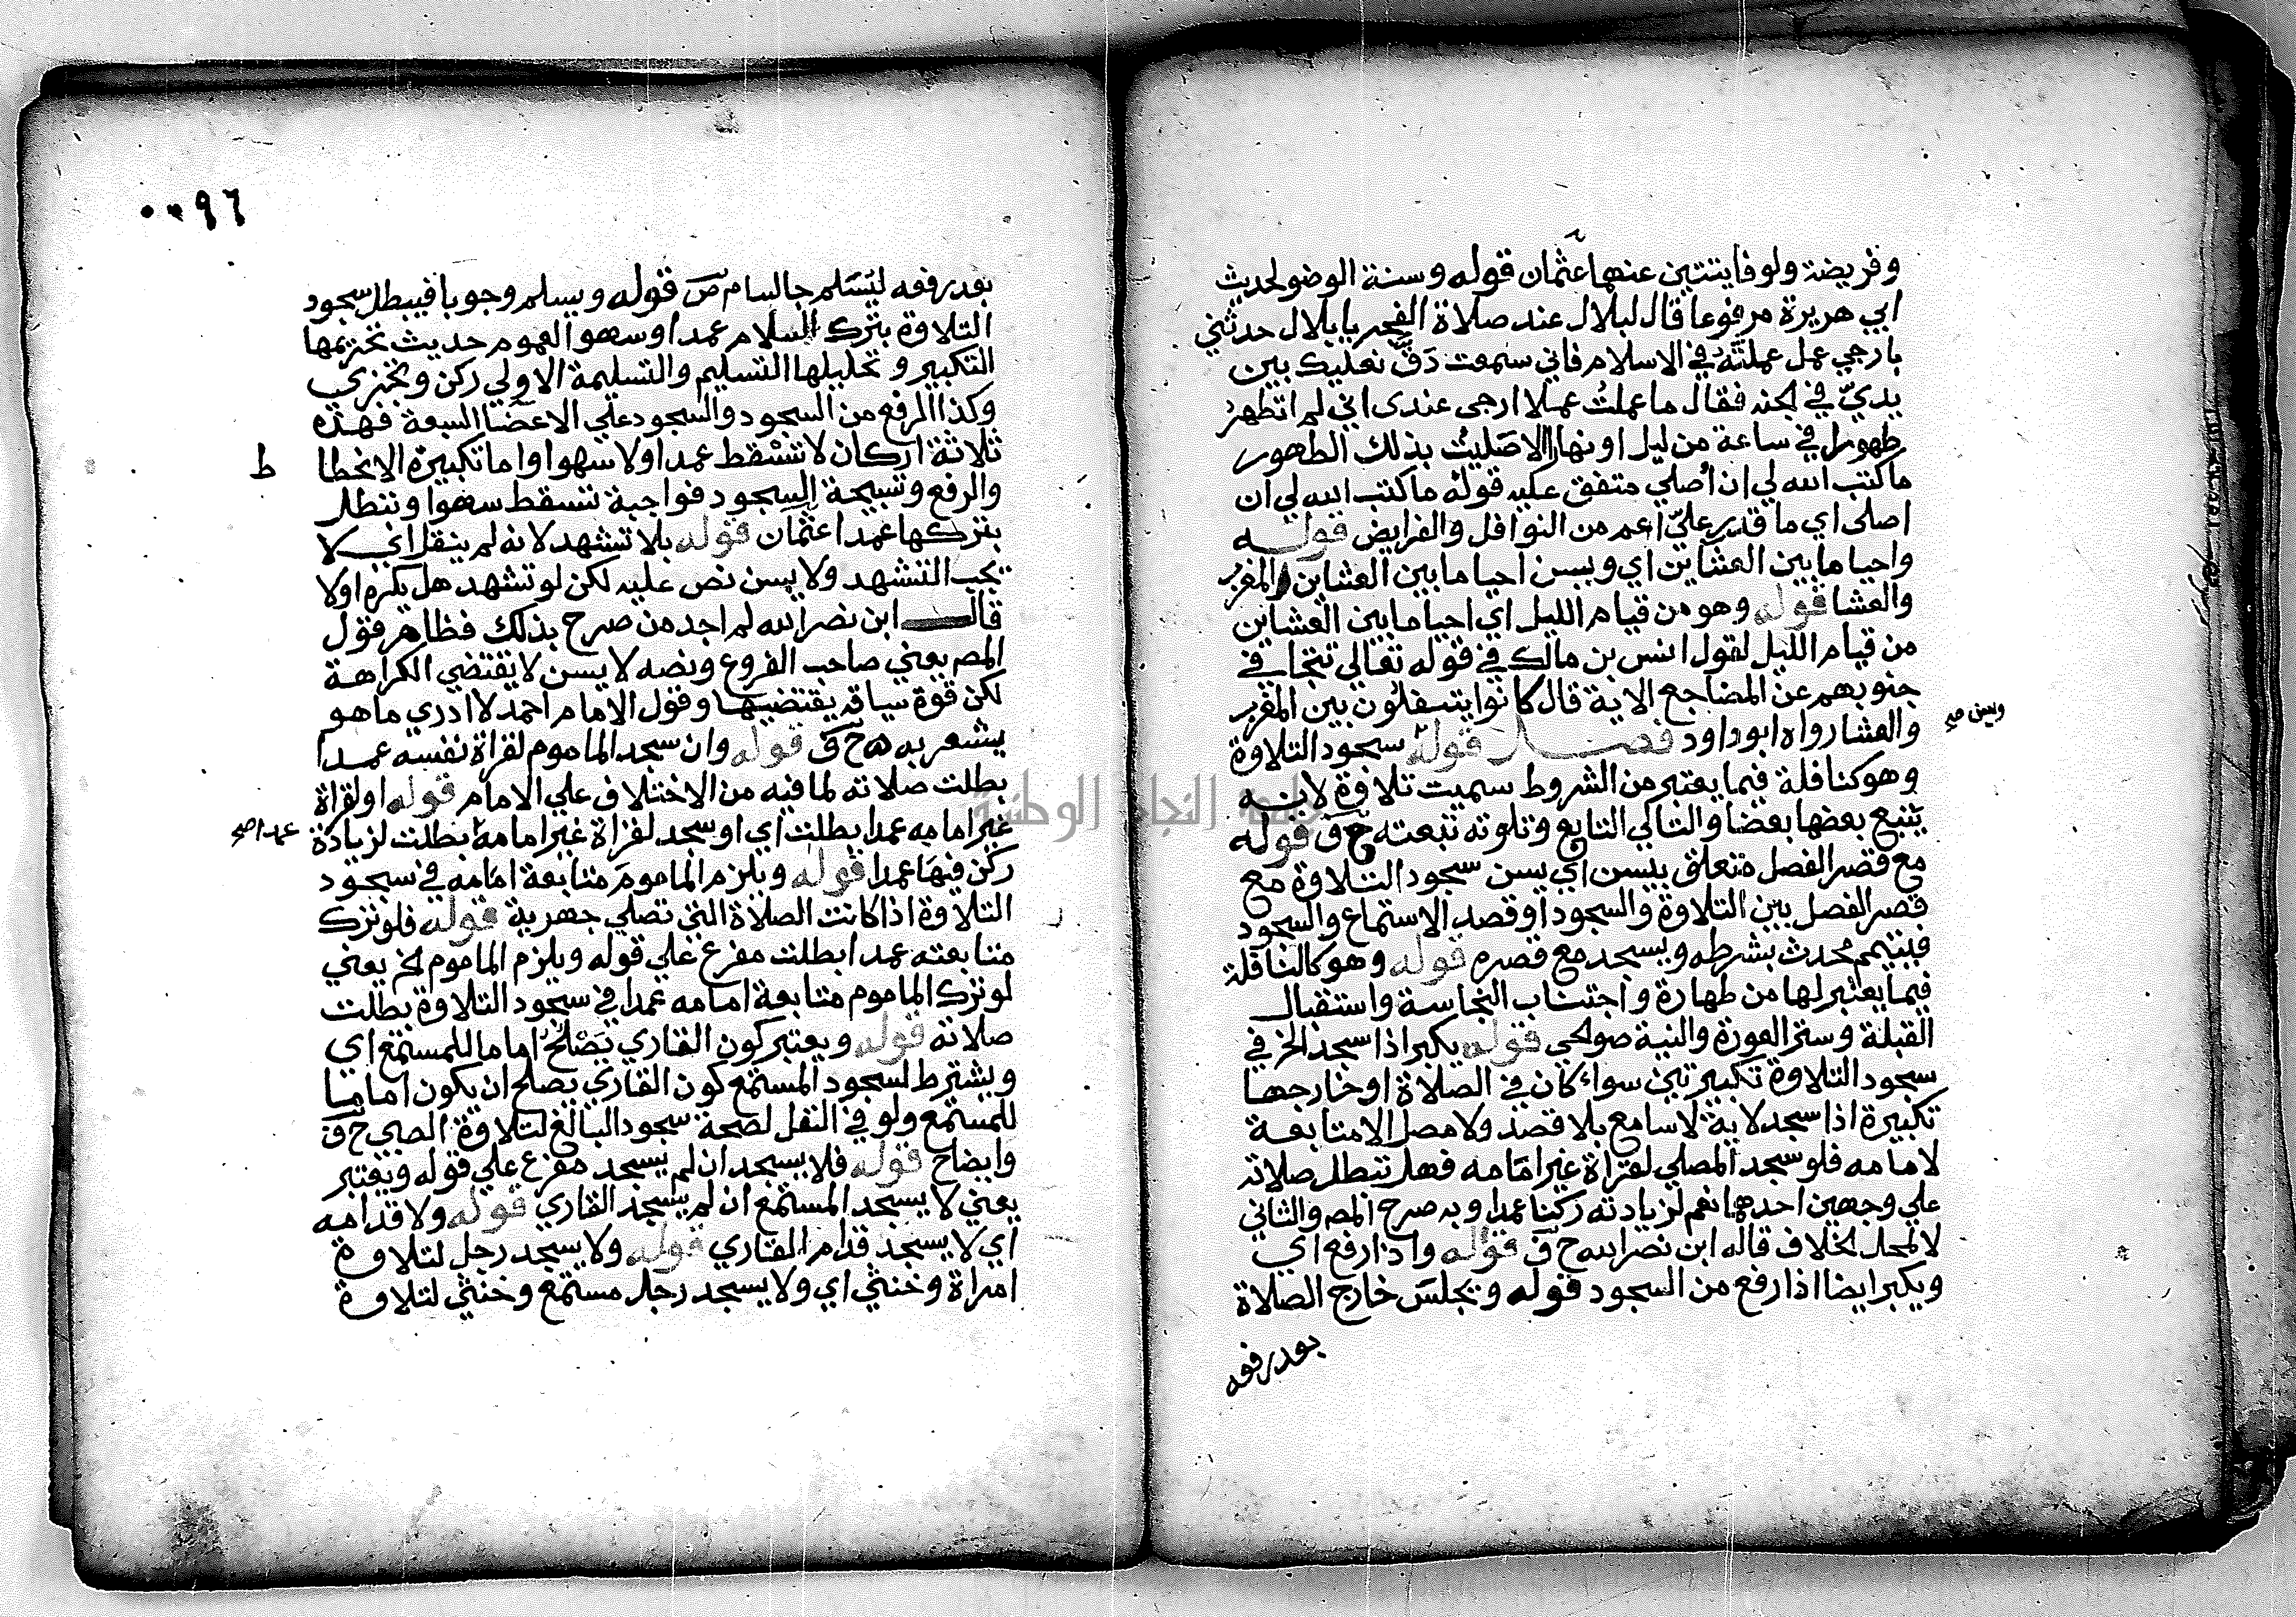 وفريضة ولو فايتتين عنهما عثمان قوله وسنة الوضو لحديث
ابي هريرة مرفوعا قال لبلال عند صلاة الفجر يا بلال حدثني
بارجي عمل عملته في الاسلام فاني سمعت دف نعليك بين
يدي في الجنه فقال ما عملت عملا ارجى عندى اني لم اتطهر
طهورا في ساعة من ليل او نهار الا صليت بذلك الطهور
ما كتب الله لي ان أصلي متفق عليه قوله ما كتب الله لي ان
اصلى اي ما قدر علي اعم من النوافل والفرايض قوله
واحيا ما بين العشاين اي ويسن احيا ما بين العشاين المغرب
والعشا قوله وهو من قيام الليل اي احيا ما بين العشاين
من قيام الليل لقول انس بن مالك في قوله تعالي تتجافي
جنوبهم عن المضاجع الاية قال كانوا يتنفلون بين المغرب
والعشا رواه ابو داود فصل قوله سجود التلاوة
ويسن صح
وهو كنافلة فيما يعتبر من الشروط سميت تلاوة لانه
يتبع بعضها بعضا والتالي التابع وتلوته تبعته ح ق قوله
مع قصر الفصل متعلق بيسن اي يسن سجود التلاوة مع
قصر الفصل بين التلاوة والسجود او قصد الاستماع والسجود
فيتيمم محدث بشرطه ويسجد مع قصره قوله وهو كالنافلة
فيما يعتبر لها من طهارة واجتناب النجاسة واستقبال
القبلة وستر العورة والنية صوالحي قوله يكبر اذا سجد الخ في
سجود التلاوة تكبيرتين سواء كان في الصلاة او خارجها
تكبيرة اذا سجد لاية لا سامع بلا قصد ولا مصل الا متابعة
لامامه فلو سجد المصلي لقراة غير امامه فهل تبطل صلاته
علي وجهين احدهما نعم لزيادته ركنا عمدا وبه صرح المص والثاني
لا لمحل الخلاف قاله ابن نصر الله ح ق قوله واذا رفع اي
ويكبر ايضا اذا رفع من السجود قوله ويجلس خارج الصلاة
بعد رفعه
٩٦
بعد رفعه ليسلم جالسا م ص قوله ويسلم وجوبا فيبطل سجود
التلاوة بترك السلام عمدا وسهوا لعموم حديث تحريمها
التكبير وتحليلها التسليم والتسليمة الاولي ركن وتجزي
وكذا الرفع من السجود والسجود علي الاعضا السبعة فهذه
ثلاثة اركان لا تسقط عمدا ولا سهوا واما تكبيرة الانحطا
ط
والرفع وتسبيحة السجود فواجبة تسقط سهوا وتبطل
بتركها عمدا عثمان قوله بلا تشهد لانه لم ينقل اي لا
يجب التشهد ولا يسن نص عليه لكن لو تشهد هل يكره اولا
قال ابن نصر الله لم اجد من صرح بذلك فظاهر قول
المص يعني صاحب الفروع ونصه لا يسن لا يقتضي الكراهة
لكن قوة سياقه يقتضيها وقول الامام احمد لا ادري ما هو
يشعر به ه ح ق قوله وان سجد الماموم لقراة نفسه عمدا
بطلت صلاته لما فيه من الاختلاف علي الامام قوله او لقراة
غير امامه عمدا بطلت اي او سجد لقراة غير امامه بطلت لزيادة
عمدا صح
ركن فيها عمدا قوله ويلزم الماموم متابعة امامه في سجود
التلاوة اذا كانت الصلاة التي تصلي جهرية قوله فلو ترك
متابعته عمدا بطلت مفرع علي قوله ويلزم الماموم الخ يعني
لو ترك الماموم متابعة امامه عمدا في سجود التلاوة بطلت
صلاته قوله ويعتبر كون القاري يصلح اماما للمستمع اي
ويشترط لسجود المستمع كون القاري يصلح ان يكون اماما
للمستمع ولو في النفل لصحة سجود البالغ لتلاوة الصبي ح ق
وايضاح قوله فلا يسجد ان لم يسجد مفرع علي قوله ويعتبر
يعني لا يسجد المستمع ان لم يسجد القاري قوله ولا قدامه
اي لا يسجد قدام القاري قوله ولا يسجد رجل لتلاوة
امراة وخنثي اي ولا يسجد رجل مستمع وخنثي لتلاوة
جامعة النجاح الوطنية